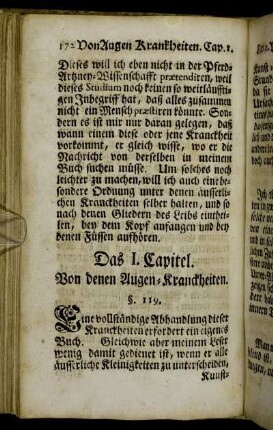 172 Von Augen Kranckheiten. Cap. 1.
Dieses will ich eben nicht in der Pferd-
Artzney-Wissenschafft prætendiren, weil
dieses Studium noch keinen so weitläufti-
gen Inbegriff hat, daß alles zusammen
nicht ein Mensch præstiren könnte. Son-
dern es ist mir nur daran gelegen, daß
wann einem diese oder jene Kranckheit
vorkommt, er gleich wisse, wo er die
Nachricht von derselben in meinem
Buch suchen müsse. Um solches noch
leichter zu machen, will ich auch eine be-
sondere Ordnung unter denen äusserli-
chen Kranckheiten selber halten, und so
nach denen Gliedern des Leibs einthei-
len, bey dem Kopf anfangen und bey
denen Füssen aufhören.
Das I. Capitel.
Von denen Augen-Kranckheiten.
§. 119.
Eine vollständige Abhandlung dieser
Kranckheiten erfordert ein eigenes
Buch. Gleichwie aber meinem Leser
wenig damit gedienet ist, wenn er alle
äusserliche Kleinigkeiten zu unterscheiden,
Kunst-